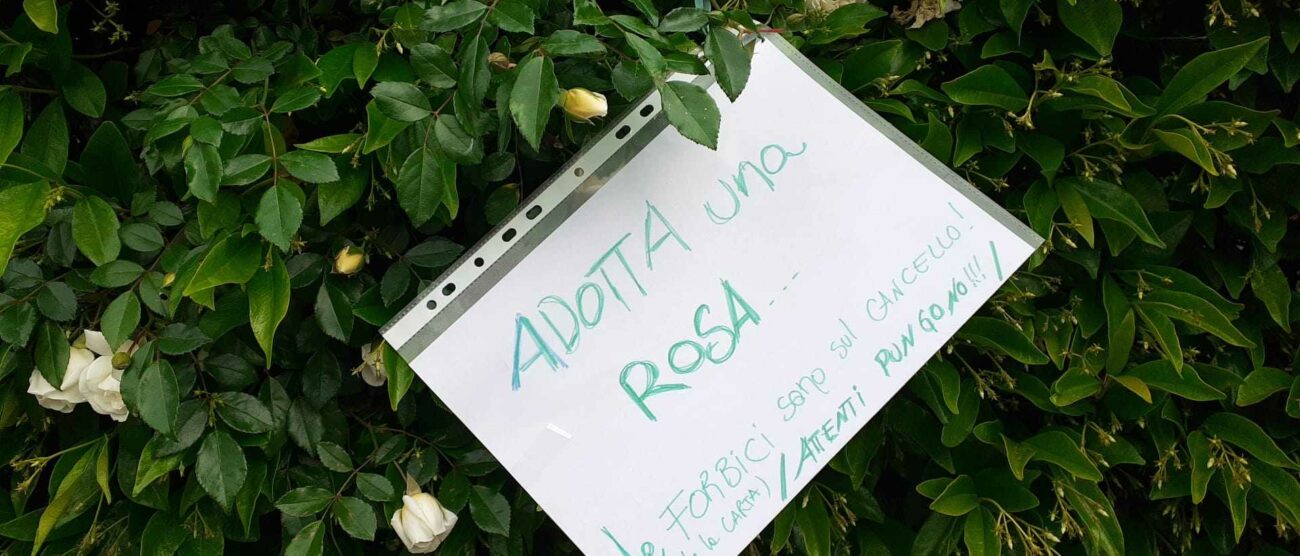 ADOTTA una
ROSA...
le FORBICI sono sul CANCELLO!
le CARTA) /ATTENTI PUNGONO!!!/